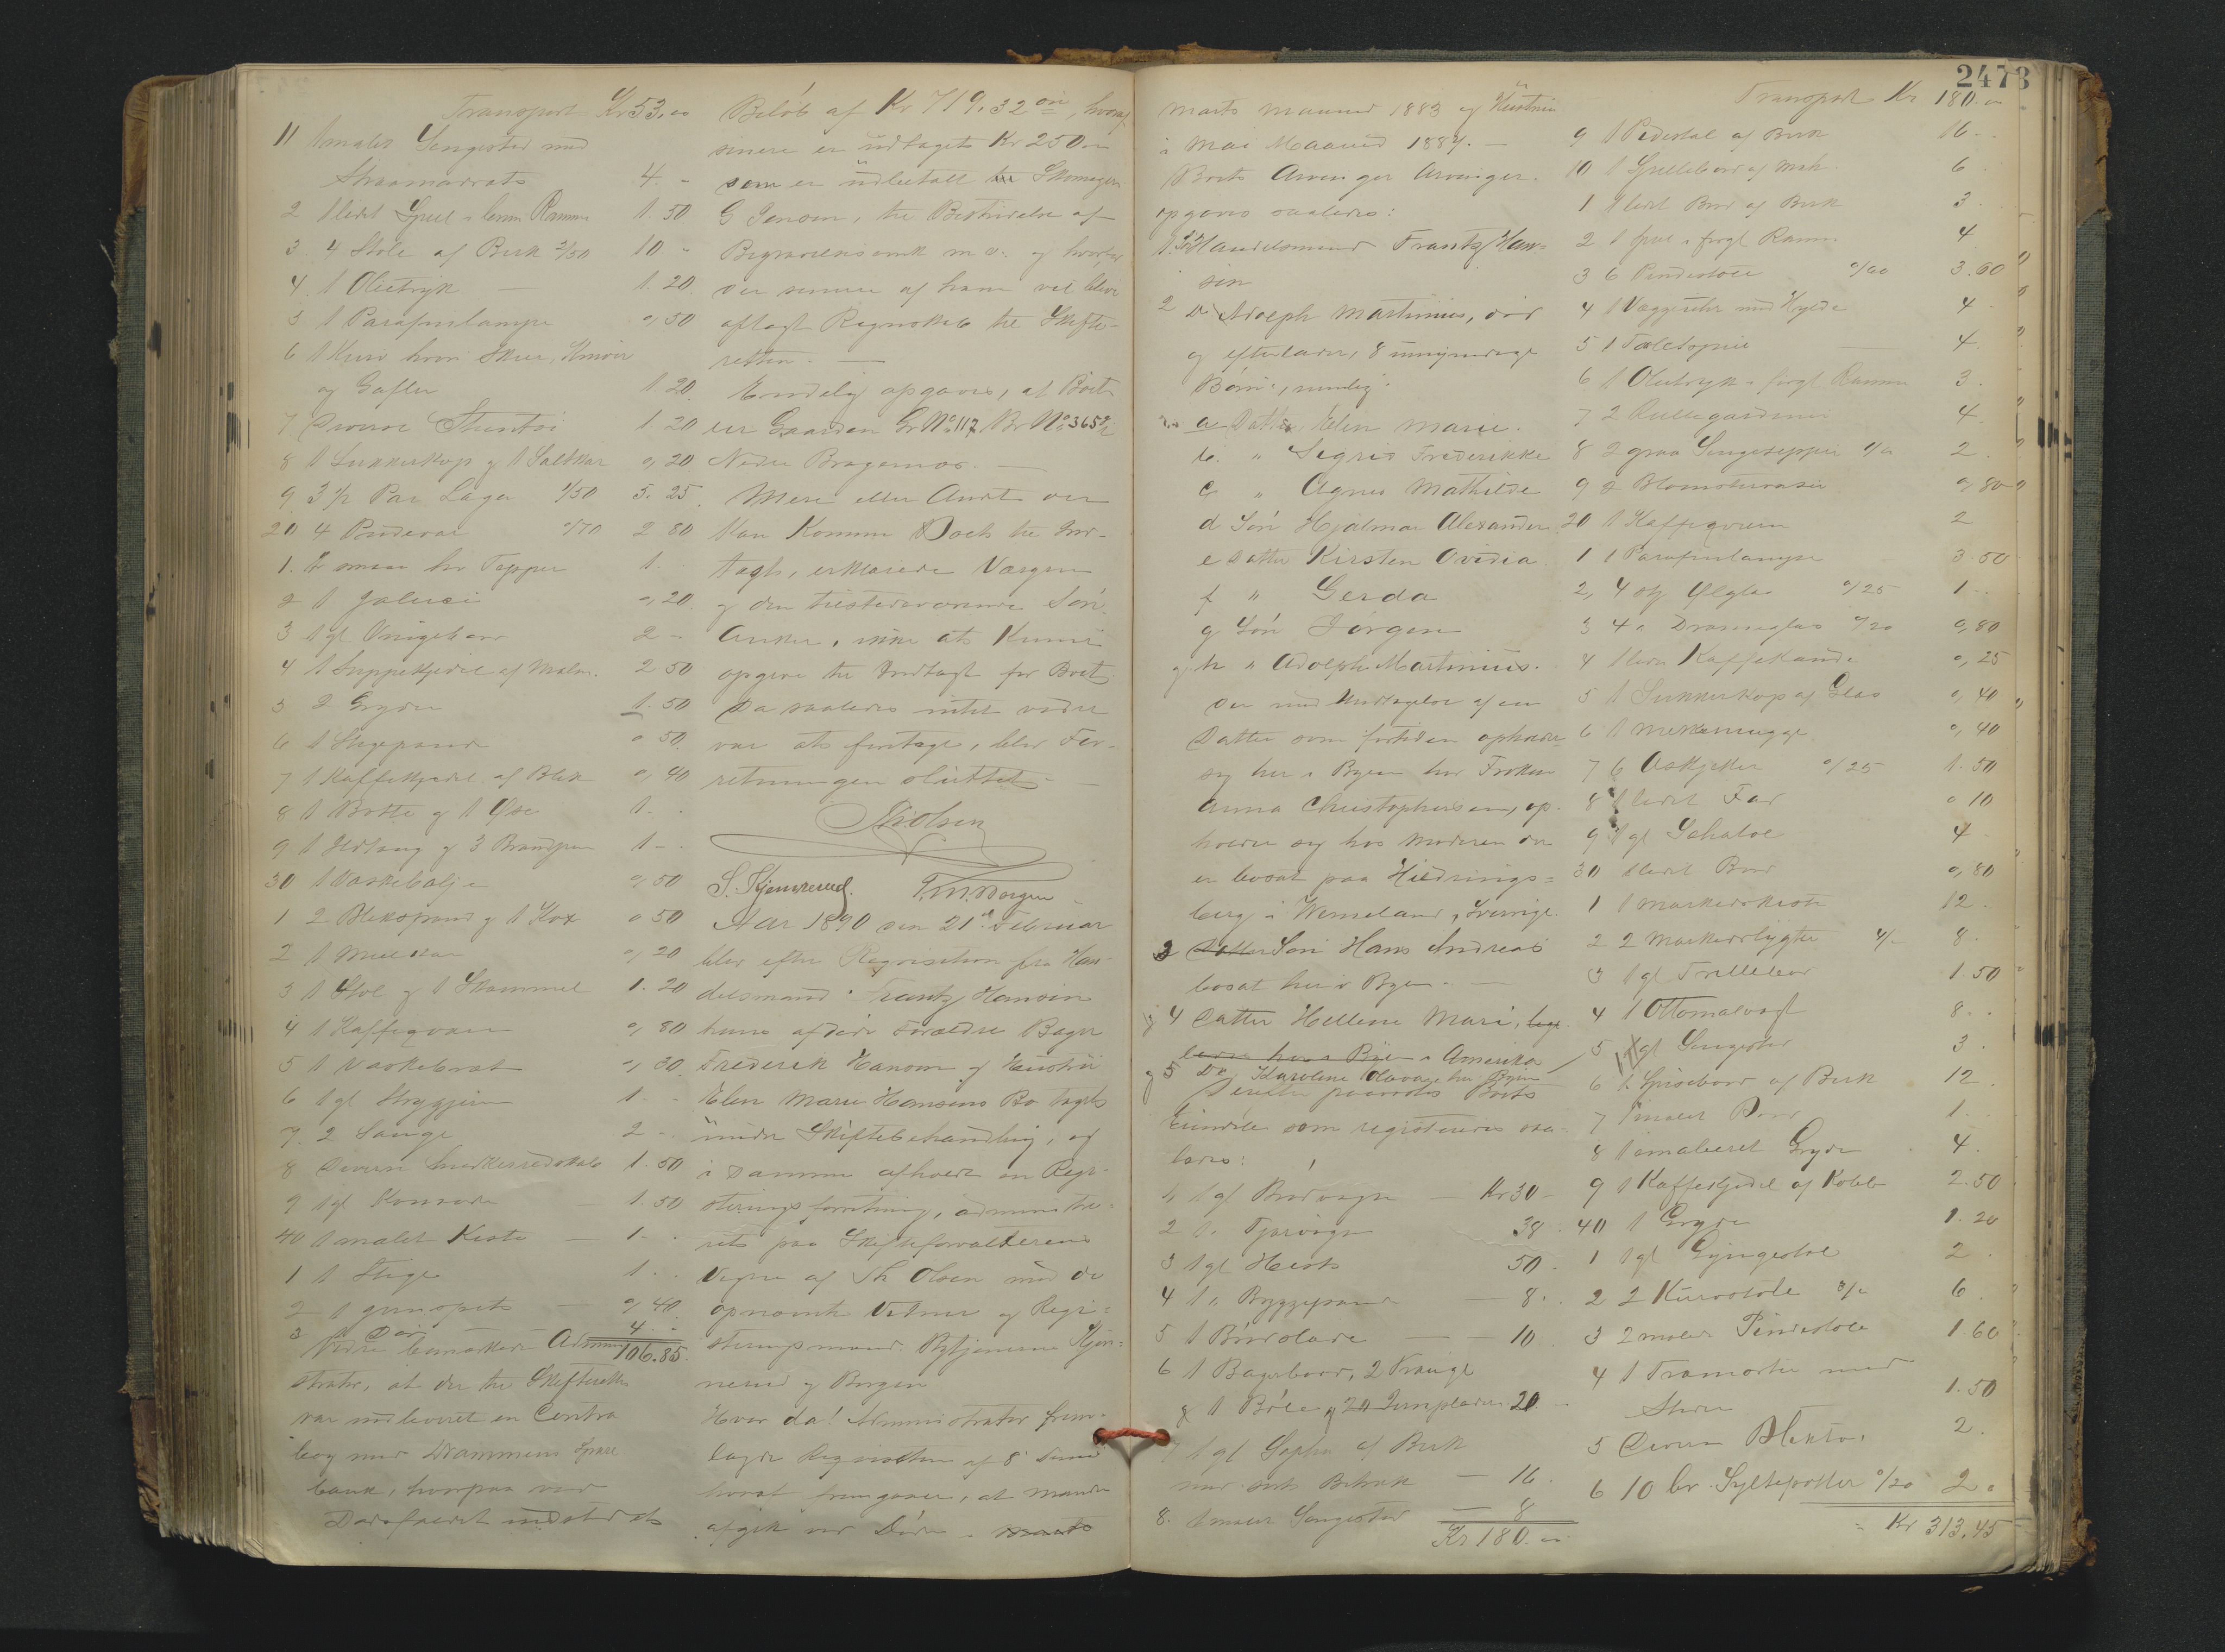 Transport Kr 53,00
11 1 malet Sengested med
Straamadrats 4. -
2 1 lidet Speil i brun Ramme 1. 50
3 4 Stole af Birk 2/50 10 -
4. 1 Olietryk 1. 20
5 1 Parafinlampe 0,50
6 1 Kurv hvori Skeer, Knive
og Gafler 1. 20
7 Diverse Stentøi 1 20
8 1 Sukkerkop og 1 Saltkar 0,20
9 3 1/2 Par Lagen 1/50 5. 25
20 4 Pudevar 0/70 2 80
1. 2 smaa Tepper 1.
2 1 Jalusi 0,20
3 1 gl Vrigekar 2 -
4 1 Suppekjedel af Malm. 2 50
5 2 Gryder 1. 50
6 1 Stegepande 0 50
7 1 Kaffekjedel af Blik 0,40
8 1 Bøtte og 1 Øse 1. -
9 1 Ildtang og 3 Brandjern 1 -
30 1 Vaskebalje 0,50
1 2 Blikspand og 1 Kox 0 50
2 1 Melkar 0,20
3 1 Stol og 1 Skammel 1. 20
4 1 Kaffeqværn 0,80
5 1 Vaskebræt 0,30
6 1 gl Strygejern 1. -
7. 2 Sauge 2 -
8 Diverse Snedkerredskab 1. 50
9 1 gl Komode 1. 50
40 1 malet Kiste 1. -
1 1 Stige 1. -
2 1 Jernspet 0,40
3 1 Dør 4. -
106.85.
Videre bemærkede Admini
strator, at der til Skifteretten
var indleveret en Contra
bog med Drammens Spare
bank, hvorpaa ved
Dødsfaldet indestod et
Beløb af Kr 719,32 øre, hvoraf
senere er udtaget Kr 250 00
som er udbetalt til Skomager
G Jensen, til Bestridelse af
Begravelsesomk m. v. og hvorfor
der senere af ham vil blive
aflagt Regnskab til Skifte-
retten. —
Endelig opgaves, at Boet
eier Gaarden Gr No 117 Br No 365
Nedre Bragernæs. —
Mere eller Andet der
kan komme Boet til Ind-
tægt, erklærede Værgen
og den tilstedeværende Søn
Anker, ikke at kunne
opgive til Indtægt for Boet.
Da saaledes intet videre
var at foretage, blev For-
retningen sluttet —
Th Olsen
S. Kjennerud. T. M. Borgen
Aar 1890 den 21de Februar
blev efter Requisition fra Han-
delsmand Frantz Hansen
hans afdøde Forældre Bager
Frederik Hansen og Hustru
Elen Marie Hansens Bo taget
under Skiftebehandling, og
i samme afholdt en Regi-
streringsforretning, administre-
ret paa Skifteforvalterens
Vegne af Th Olsen med de
opnævnte Vidner og Regi-
streringsmænd. Bytjenerne Kjen-
nerud og Borgen
Hvor da! Administrator frem-
lagde Requisition af 8 dennes
hvoraf fremgaar, at Manden
afgik ved Døden i
2473
Marts Maaned 1883 og Hustruen
i Mai Maaned 1887. —
Boets Arvinger
opgaves saaledes:
1. Søn Handelsmand Frantz Han-
sen
2 Do Adolph Martinius, død
og efterlader, 8 umyndige
Børn, nemlig:
a Datter Elen Marie.
b. " Sigrid Frederikke
c " Agnes Mathilde
d Søn Hjalmar Alexander
e Datter Kirsten Ovidia
f " Gerda
g Søn Jørgen
og h " Adolph Martinius.
der med Undtagelse af en
Datter som fortiden opholder
sig her i Byen hos Frøken
Anna Christophersen, op-
holder sig hos Moderen der
er bosat paa
berg i Wermeland, Sverige.
3 Søn Hans Andreas
bosat her i Byen. —
4 Datter Hellene Mari,
i Amerika
og 5 Do Karoline Olava, her i Byen
Derefter paavistes Boets
Eiendele som registreredes saa-
ledes:
1, 1 gl Brødvogn Kr 30 -
2 1 " Fjærvogn 38
3 1 gl Hest 50.
4 1 " Byggepande 8.
5 1 10
6 1 Bagerbord, 2 Trauge
20.
7 1 gl Sopha af Birk
med sort Betræk 16.
8. 1 malet Sengested 8
Kr 180. 00
Transport Kr 180. 00
9 1 Pidestal af Birk 16. -
10 1 Spillebord af Mah. 6
1 1 lidet Bord af Birk 3
2 1 Speil i forgl Ramme 4
3 6 Pindestole 0/60 3.60
4 1 Væggeuhr med Hylde 4
5 1 4.
6 1 Olietryk i forgl Ramme 3.
7 2 Rullegardiner 4.
8 2 graa Sengetepper 1/00 2
9 2 Blomstervaser 0,80
20 1 Kaffeqværn 2
1 1 Parafinlampe 3.50
2, 4 stk Ølglas 0/25 1 -
3 4 " Dramsglas 0/20 0,80
4 1 Kaffekande 0,25
5 1 Sukkerkop af Glas 0,40
6 1 Melkemugge 0,40
7 6 Askjetter 0/25 1.50
8 1 lidet Fad 0 10
9 1 gl Schatol 4
30 1 lidet Bord 0,80
1 1 Markedskiste 12.
2 2 Markedslygter 4/- 8.
3 1 gl Trillebør 1.50
4 1 Ottomalvægt 8.
5 1 gl Sengested 3
6 1 Spisebord af Birk 12
7 1 malet Bord 1.
8 1 emaljeret Gryde 4.
9 1 Kaffekjedel af Kobber 2.50
40 1 Gryde 1.20
1 1 gl Gyngestol 2.
2 2 Kurvstole 3/00 6.
3 2 malede Pindestole 1.60
4 1 Træmorter med
Støder 1.50
5 Diverse Bliktøi 2.
6 10 br. Syltepotter 0/20 2.
Kr 313,45